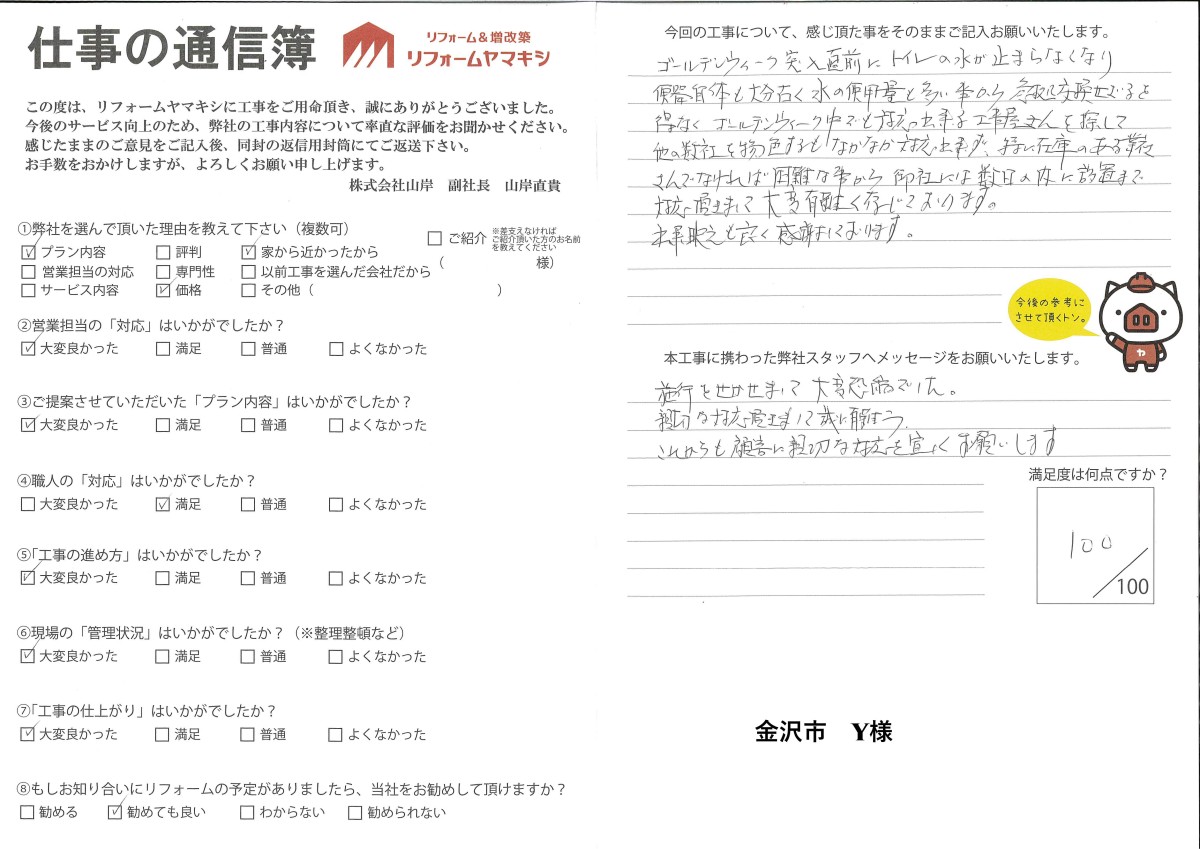 仕事の通信簿
リフォーム＆増改築
リフォームヤマキシ
この度は、リフォームヤマキシに工事をご用命頂き、誠にありがとうございました。
今後のサービス向上のため、弊社の工事内容について率直な評価をお聞かせください。
感じたままのご意見をご記入後、同封の返信用封筒にてご返送下さい。
お手数をおかけしますが、よろしくお願い申し上げます。
株式会社山岸　副社長　山岸直貴
①弊社を選んで頂いた理由を教えて下さい（複数可）
☑プラン内容 □評判 ☑家から近かったから
□営業担当の対応 □専門性 □以前工事を選んだ会社だから
□サービス内容 ☑価格 □その他（　　　）
□ご紹介 ※差支えなければ
ご紹介頂いた方のお名前
を教えてください
（　　　様）
②営業担当の「対応」はいかがでしたか？
☑大変良かった □満足 □普通 □よくなかった
③ご提案させていただいた「プラン内容」はいかがでしたか？
☑大変良かった □満足 □普通 □よくなかった
④職人の「対応」はいかがでしたか？
□大変良かった ☑満足 □普通 □よくなかった
⑤「工事の進め方」はいかがでしたか？
☑大変良かった □満足 □普通 □よくなかった
⑥現場の「管理状況」はいかがでしたか？（※整理整頓など）
☑大変良かった □満足 □普通 □よくなかった
⑦「工事の仕上がり」はいかがでしたか？
☑大変良かった □満足 □普通 □よくなかった
⑧もしお知り合いにリフォームの予定がありましたら、当社をお勧めして頂けますか？
□勧める ☑勧めても良い □わからない □勧められない
今回の工事について、感じ頂た事をそのままご記入お願いいたします。
ゴールデンウィーク突入直前にトイレの水が止まらなくなり
便器自体も大分古く水の使用量も多い事から急拠交換せざるを
得なくゴールデンウィーク中でも対応出来る工事屋さんを探して
他の数社を物色するもなかなか対応出来ず、特に在庫のある業者
さんでなければ困難な事から御社には数日の内に設置まで
対応頂きまして大変有難く存じております。
出来映えも良く感謝しております。
今後の参考に
させて頂くトン。
本工事に携わった弊社スタッフへメッセージをお願いいたします。
施行をせかせまして大変恐縮でした。
親切な対応頂きまして誠に有難う
これからも顧客に親切な対応を宜しくお願いします
満足度は何点ですか？
100
/100
金沢市　Y様